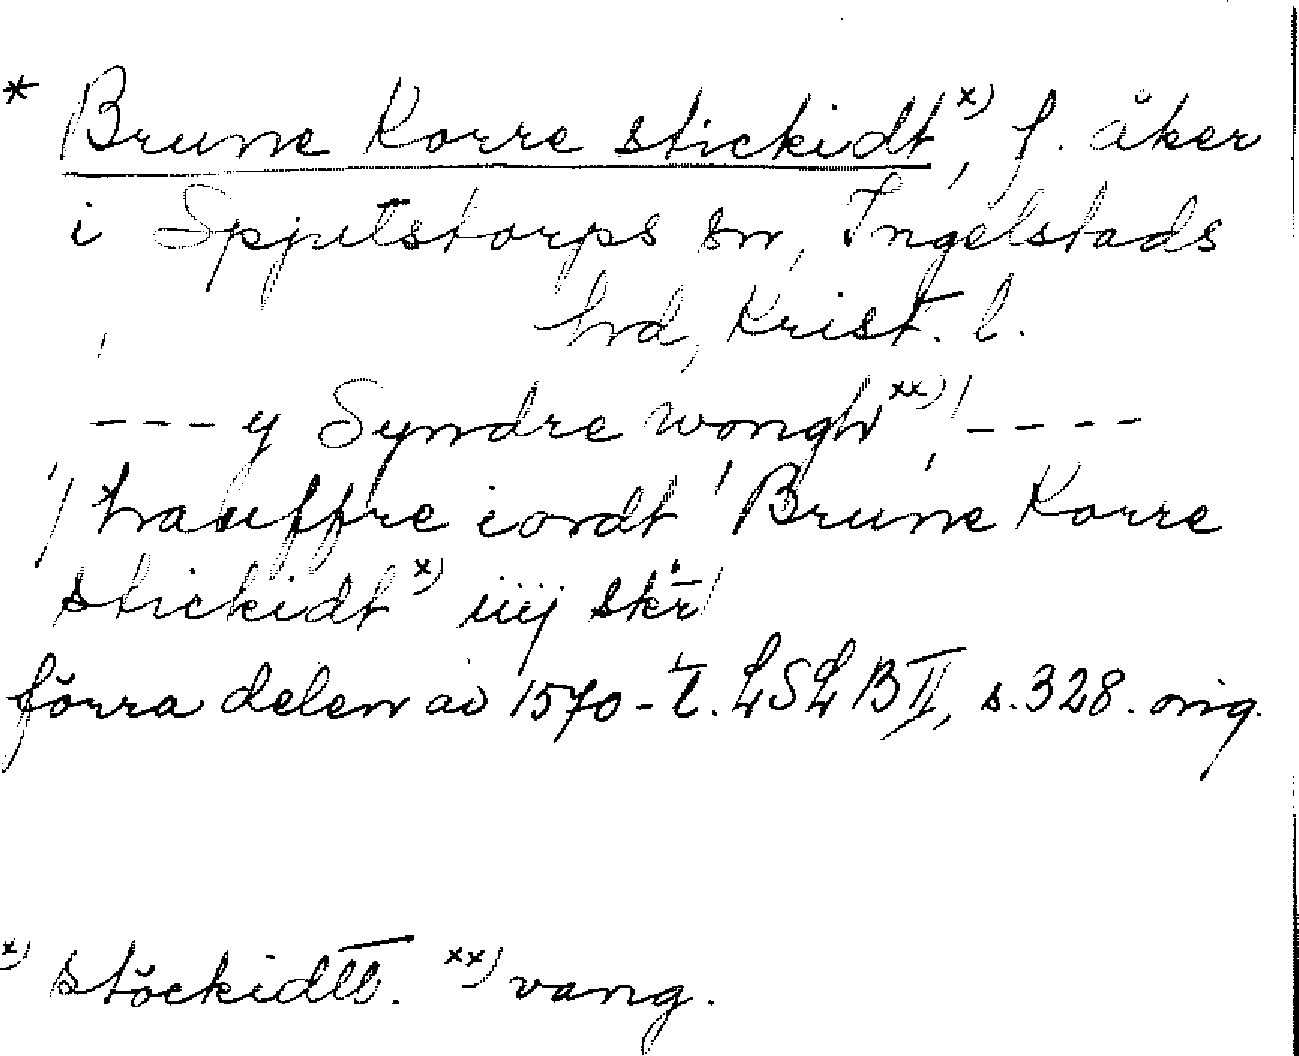 * Brune Korre stickidt x), f. åker
i Spjutstorps sn, Ingelstads
hd, Krist. l.
---y Syndre wongh xx)/, ----
'/ hauffre iordt 'Brune Korre
stickidt x) iiij skr/
förra delen av 1570-t. LSLB II, s. 328. orig.
x) stöckidtt. xx) vang.